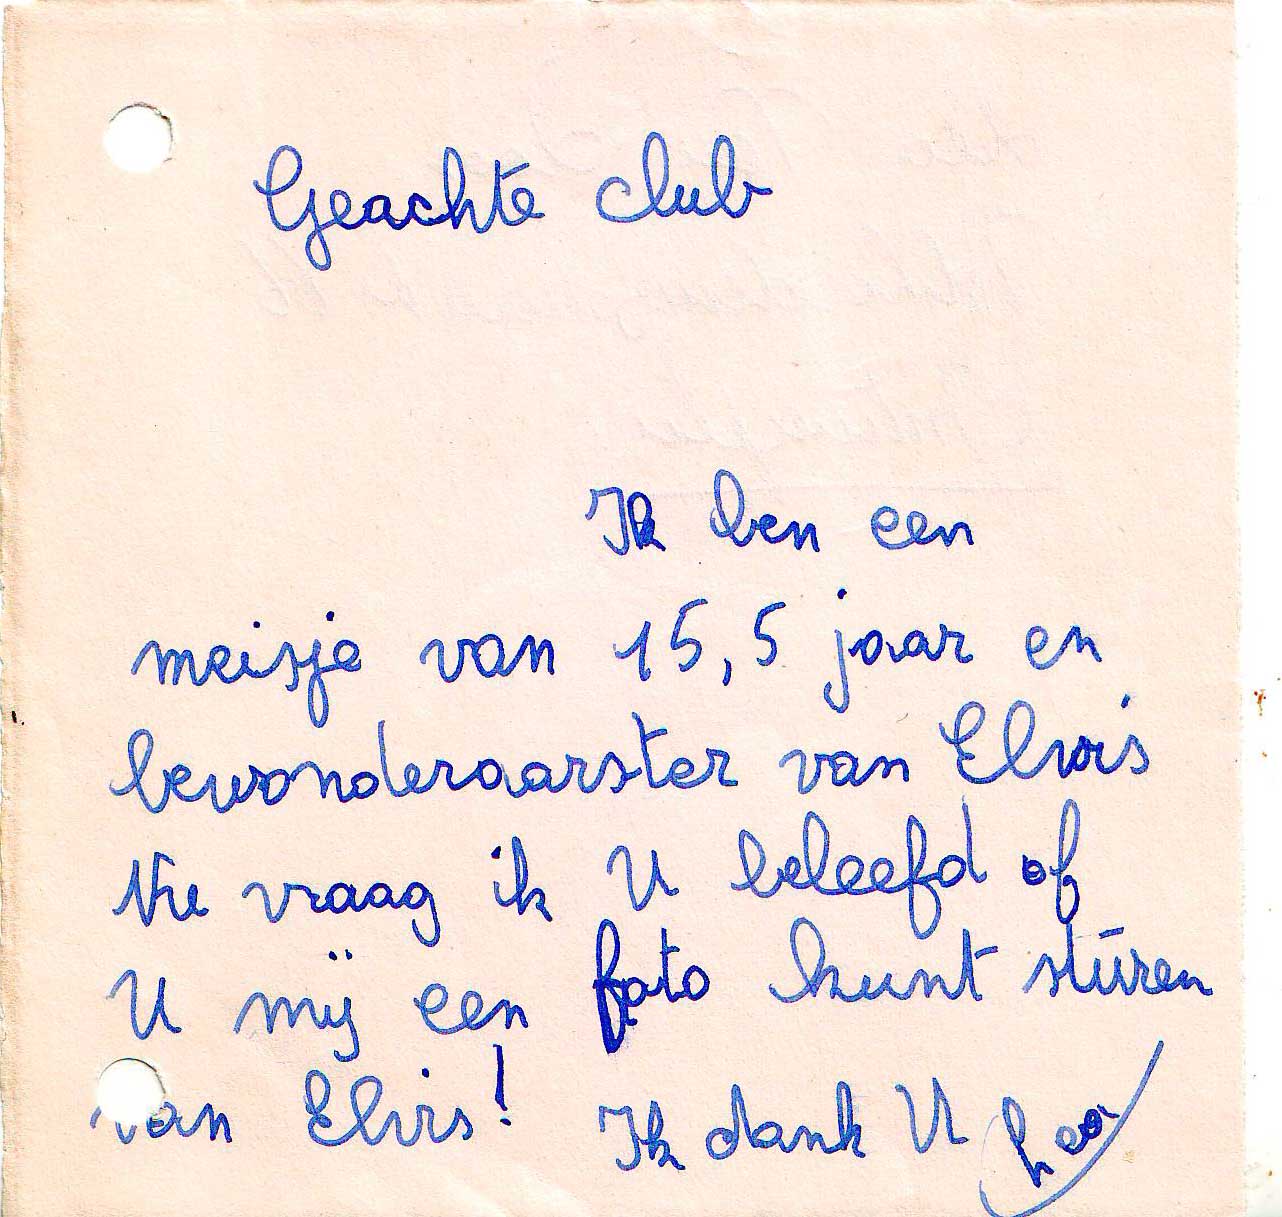 Geachte club
Ik ben een
meisje van 15,5 jaar en
bewonderaarster van Elvis
Nu vraag ik U beleefd of
U mij een foto kunt stùren
van Elvis! Ik dank U